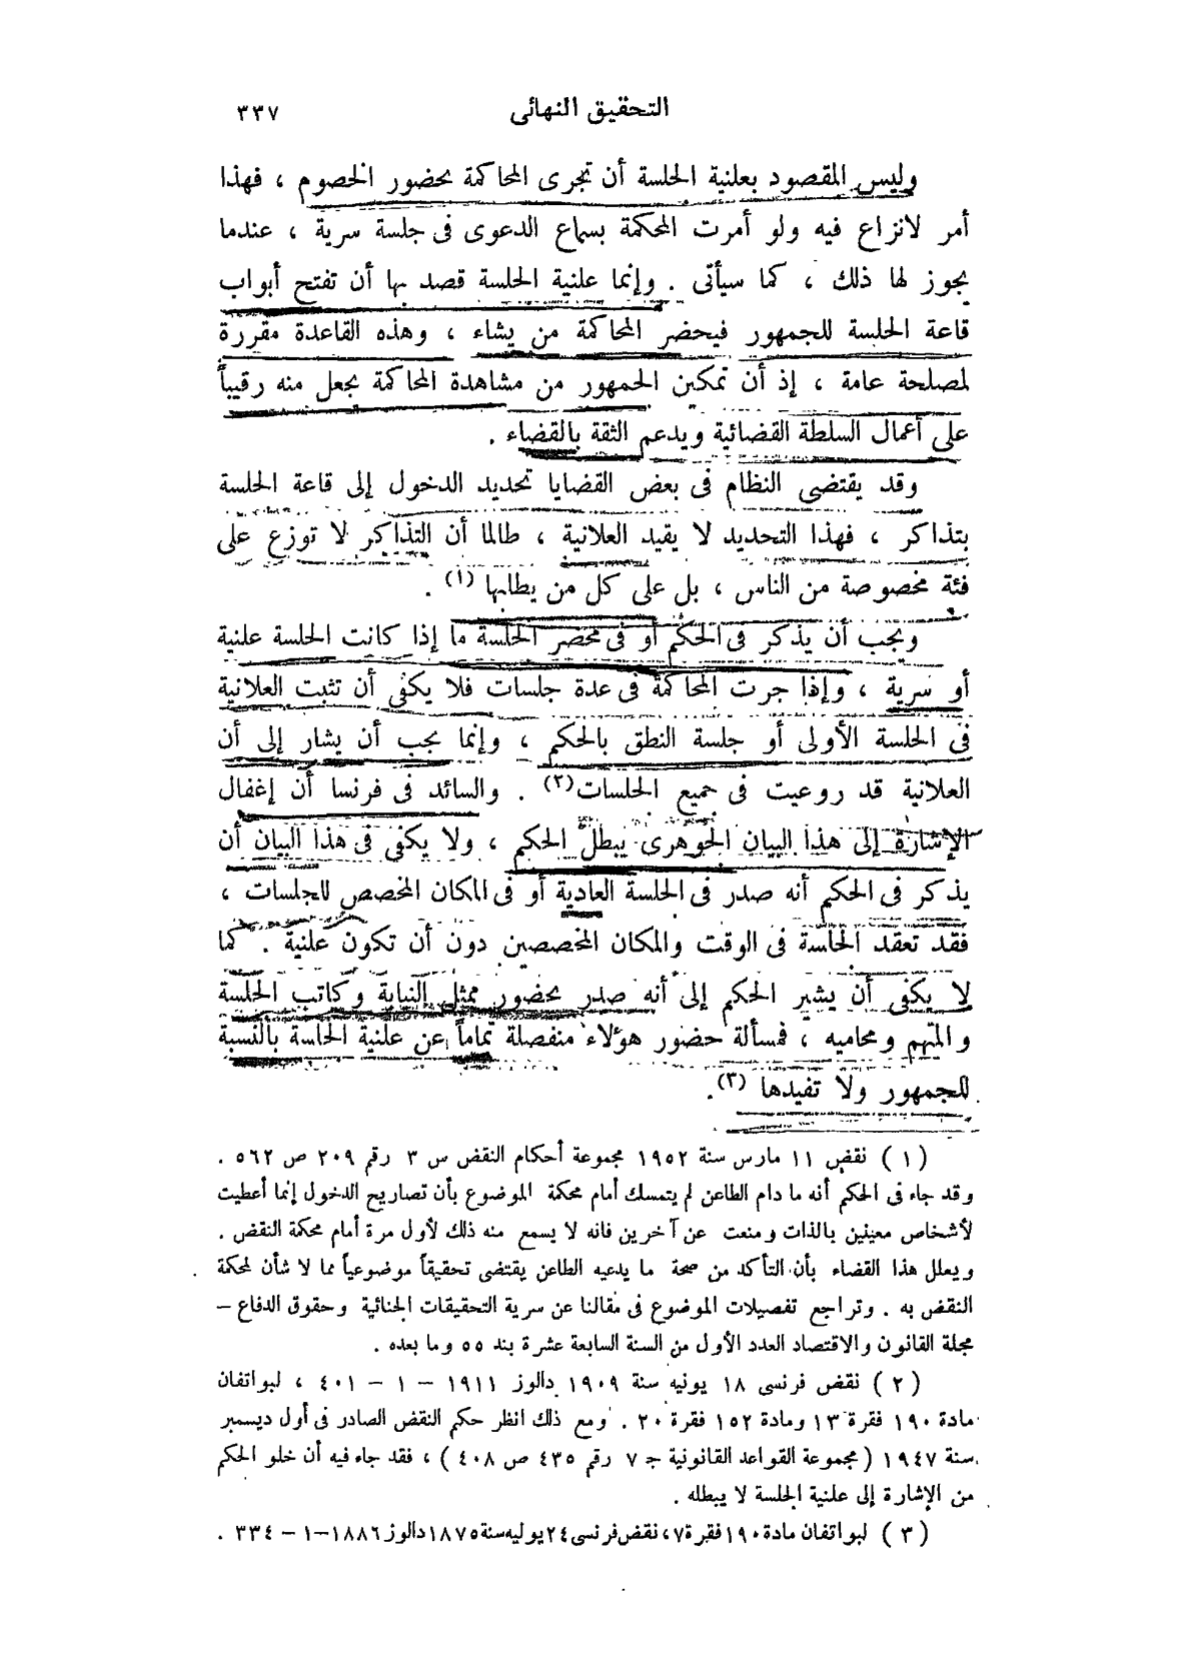 التحقيق النهائى ٣٣٧
وليس المقصود بعلنية الجلسة أن تجرى المحاكمة بحضور الخصوم ، فهذا
أمر لا نزاع فيه ولو أمرت المحكمة بسماع الدعوى فى جلسة سرية ، عندما
يجوز لها ذلك ، كما سيأتى . وإنما علنية الجلسة قصد بها أن تفتح أبواب
قاعة الجلسة للجمهور فيحضر المحاكمة من يشاء ، وهذه القاعدة مقررة
لمصلحة عامة ، إذ أن تمكين الجمهور من مشاهدة المحاكمة يجعل منه رقيباً
على أعمال السلطة القضائية ويدعم الثقة بالقضاء .
وقد يقتضى النظام فى بعض القضايا تحديد الدخول إلى قاعة الجلسة
بتذاكر ، فهذا التحديد لا يقيد العلانية ، طالما أن التذاكر لا توزع على
فئة مخصوصة من الناس ، بل على كل من يطلبها (١) .
ويجب أن يذكر فى الحكم أو فى محضر الجلسة ما إذا كانت الجلسة علنية
أو سرية ، وإذا جرت المحاكمة فى عدة جلسات فلا يكفى أن تثبت العلانية
فى الجلسة الأولى أو جلسة النطق بالحكم ، وإنما يجب أن يشار إلى أن
العلانية قد روعيت فى جميع الجلسات (٢) . والسائد فى فرنسا أن إغفال
الإشارة إلى هذا البيان الجوهرى يبطل الحكم ، ولا يكفى فى هذا البيان أن
يذكر فى الحكم أنه صدر فى الجلسة العادية أو فى المكان المخصص للجلسات ،
فقد تعقد الجلسة فى الوقت والمكان المخصصين دون أن تكون علنية . كما
لا يكفى أن يشير الحكم إلى أنه صدر بحضور ممثل النيابة وكاتب الجلسة
والمتهم ومحاميه ، فمسألة حضور هؤلاء منفصلة تماماً عن علنية الجلسة بالنسبة
للجمهور ولا تفيدها (٣) .
( ١ ) نقض ١١ مارس سنة ١٩٥٢ مجموعة أحكام النقض س ٣ رقم ٢٠٩ ص ٥٦٢ .
وقد جاء فى الحكم أنه ما دام الطاعن لم يتمسك أمام محكمة الموضوع بأن تصاريح الدخول إنما أعطيت
لأشخاص معينين بالذات ومنعت عن آخرين فانه لا يسمع منه ذلك لأول مرة أمام محكمة النقض .
ويعلل هذا القضاء بأن التأكد من صحة ما يدعيه الطاعن يقتضى تحقيقاً موضوعياً مما لا شأن لمحكمة
النقض به . وتراجع تفصيلات الموضوع فى مقالنا عن سرية التحقيقات الجنائية وحقوق الدفاع –
مجلة القانون والاقتصاد العدد الأول من السنة السابعة عشرة بند ٥٥ وما بعده .
( ٢ ) نقض فرنسى ١٨ يونيه سنة ١٩٠٩ دالوز ١٩١١ – ١ – ٤٠١ ، لبواتفان
مادة ١٩٠ فقرة ١٣ ومادة ١٥٢ فقرة ٢٠ . ومع ذلك انظر حكم النقض الصادر فى أول ديسمبر
سنة ١٩٤٧ ( مجموعة القواعد القانونية ج ٧ رقم ٤٣٥ ص ٤٠٨ ) ، فقد جاء فيه أن خلو الحكم
من الإشارة إلى علنية الجلسة لا يبطله .
( ٣ ) لبواتفان مادة ١٩٠ فقرة ٧ ، نقض فرنسى ٢٤ يوليه سنة ١٨٧٥ دالوز ١٨٨٦–١ – ٣٣٤ .